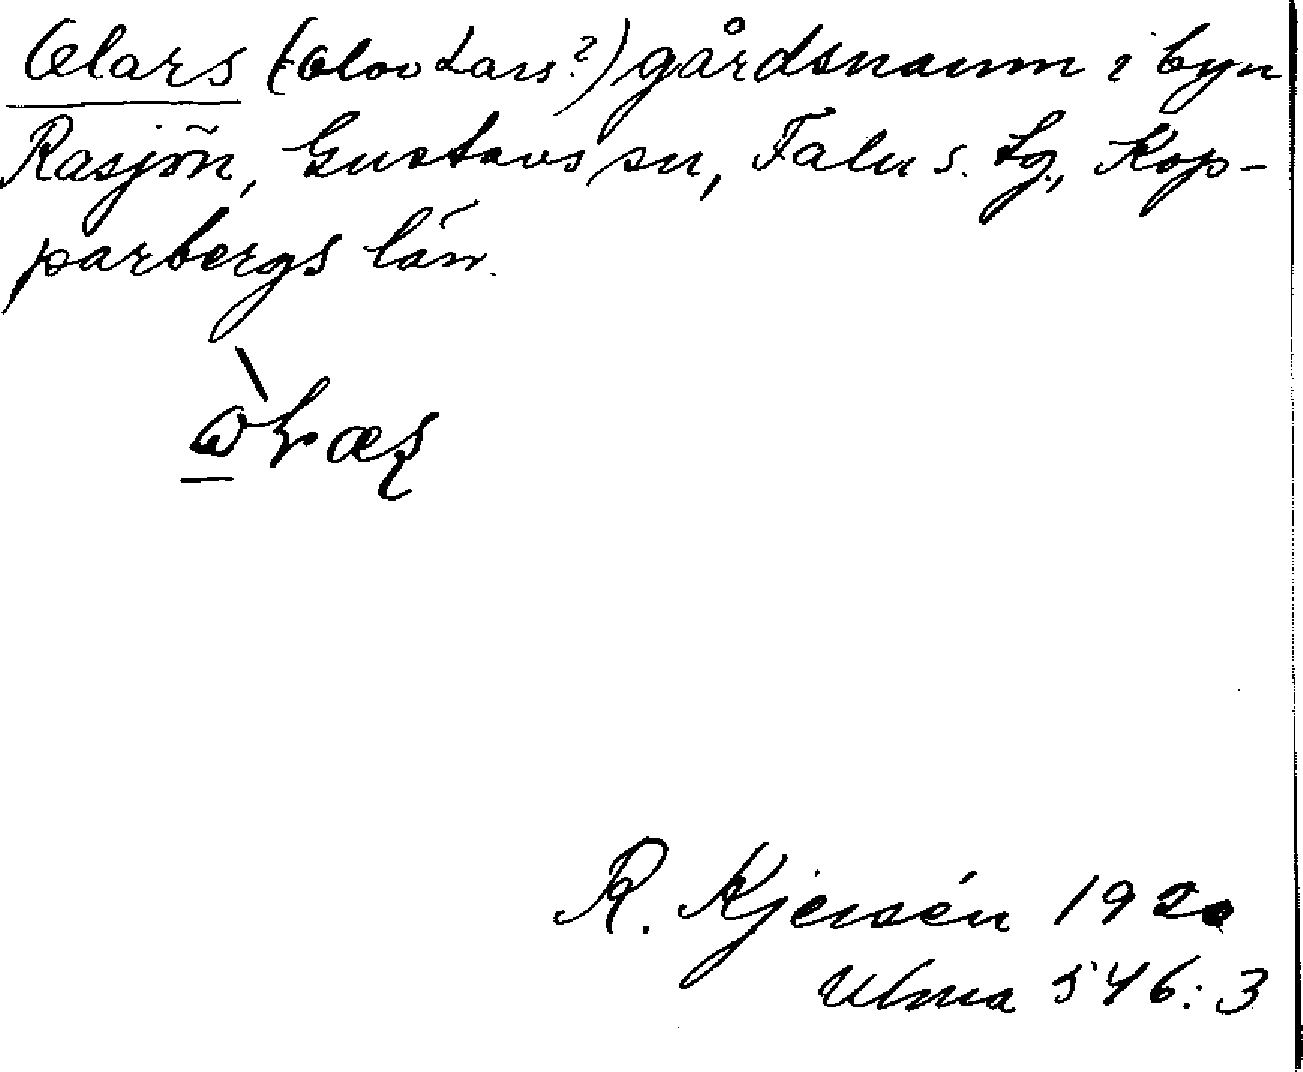 Olars (Olov Lars?) gårdsnamn i byn
Rasjön, Gustavs sn, Falu s. tg., Kop-
parbergs län.
R. Kjersén 1920
Ulma 546:3